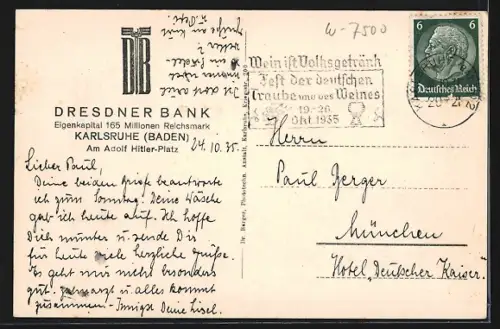 W-7500
6 6
Deutsches Reich
Wein ist Volksgetränk
Fest der deutschen
Traube und des Weines
19.-26.
Okt 1935
DRESDNER BANK
Eigenkapital 165 Millionen Reichsmark
KARLSRUHE (BADEN)
Am Adolf Hitler-Platz
24.10.35.
Lieber Paul,
Deine beiden Briefe beantworte
ich zum Sonntag. Deine Wäsche
gab ich heute auf. Ich hoffe
Dich munter u. sende Dir
für heute viele herzliche Grüße.
Es geht mir nicht besonders
gut. Zahnarzt u. alles kommt
zusammen – Innigst Deine Liesel.
Herrn
Paul Berger
München
Hotel „Deutscher Kaiser"